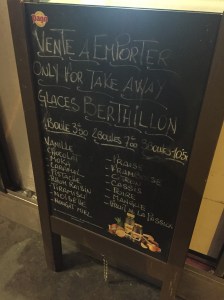 VENTE A EMPORTER
ONLY FOR TAKE AWAY
GLACES BERTHILLON
1 BOULE 3€50 2 BOULES 7€00 3 BOULES
VANILLE
CHOCOLAT
MOKA
CARAMEL
PISTACHE
RHUM RAISIN
NOISETTE
NOUGAT MIEL
- FRAMBOISE
- CITRON
- CASSIS
- POIRE
- MANGUE